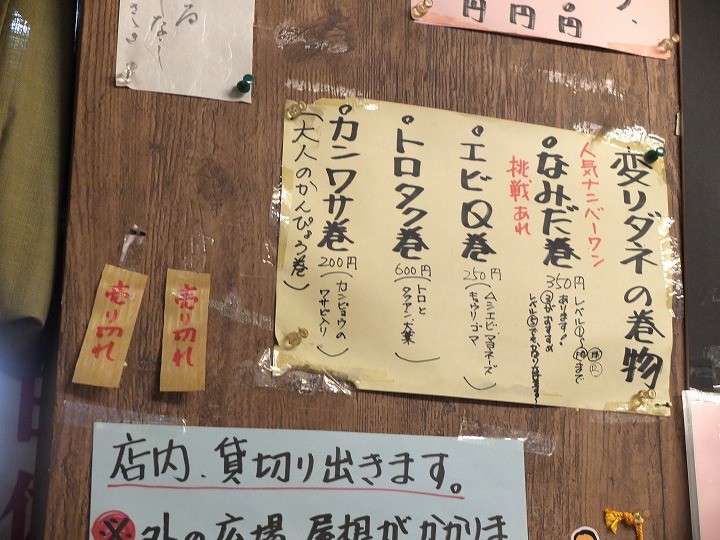 円
円
円
変リダネの巻物
人気ナンベーワン
挑戦あれ
なみだ巻
350円
レベル①〜⑩まで
あります!
エビQ巻
250円
(ムシエビ・マヨネーズ
キュウリ・ゴマ)
トロタク巻
600円
(トロと
タクアン・大葉)
カンワサ巻
200円
(カンピョウの
ワサビ入り)
(大人のかんぴょう巻)
売り切れ
売り切れ
店内、貸切り出きます。
※外の広場、屋根がかかりま